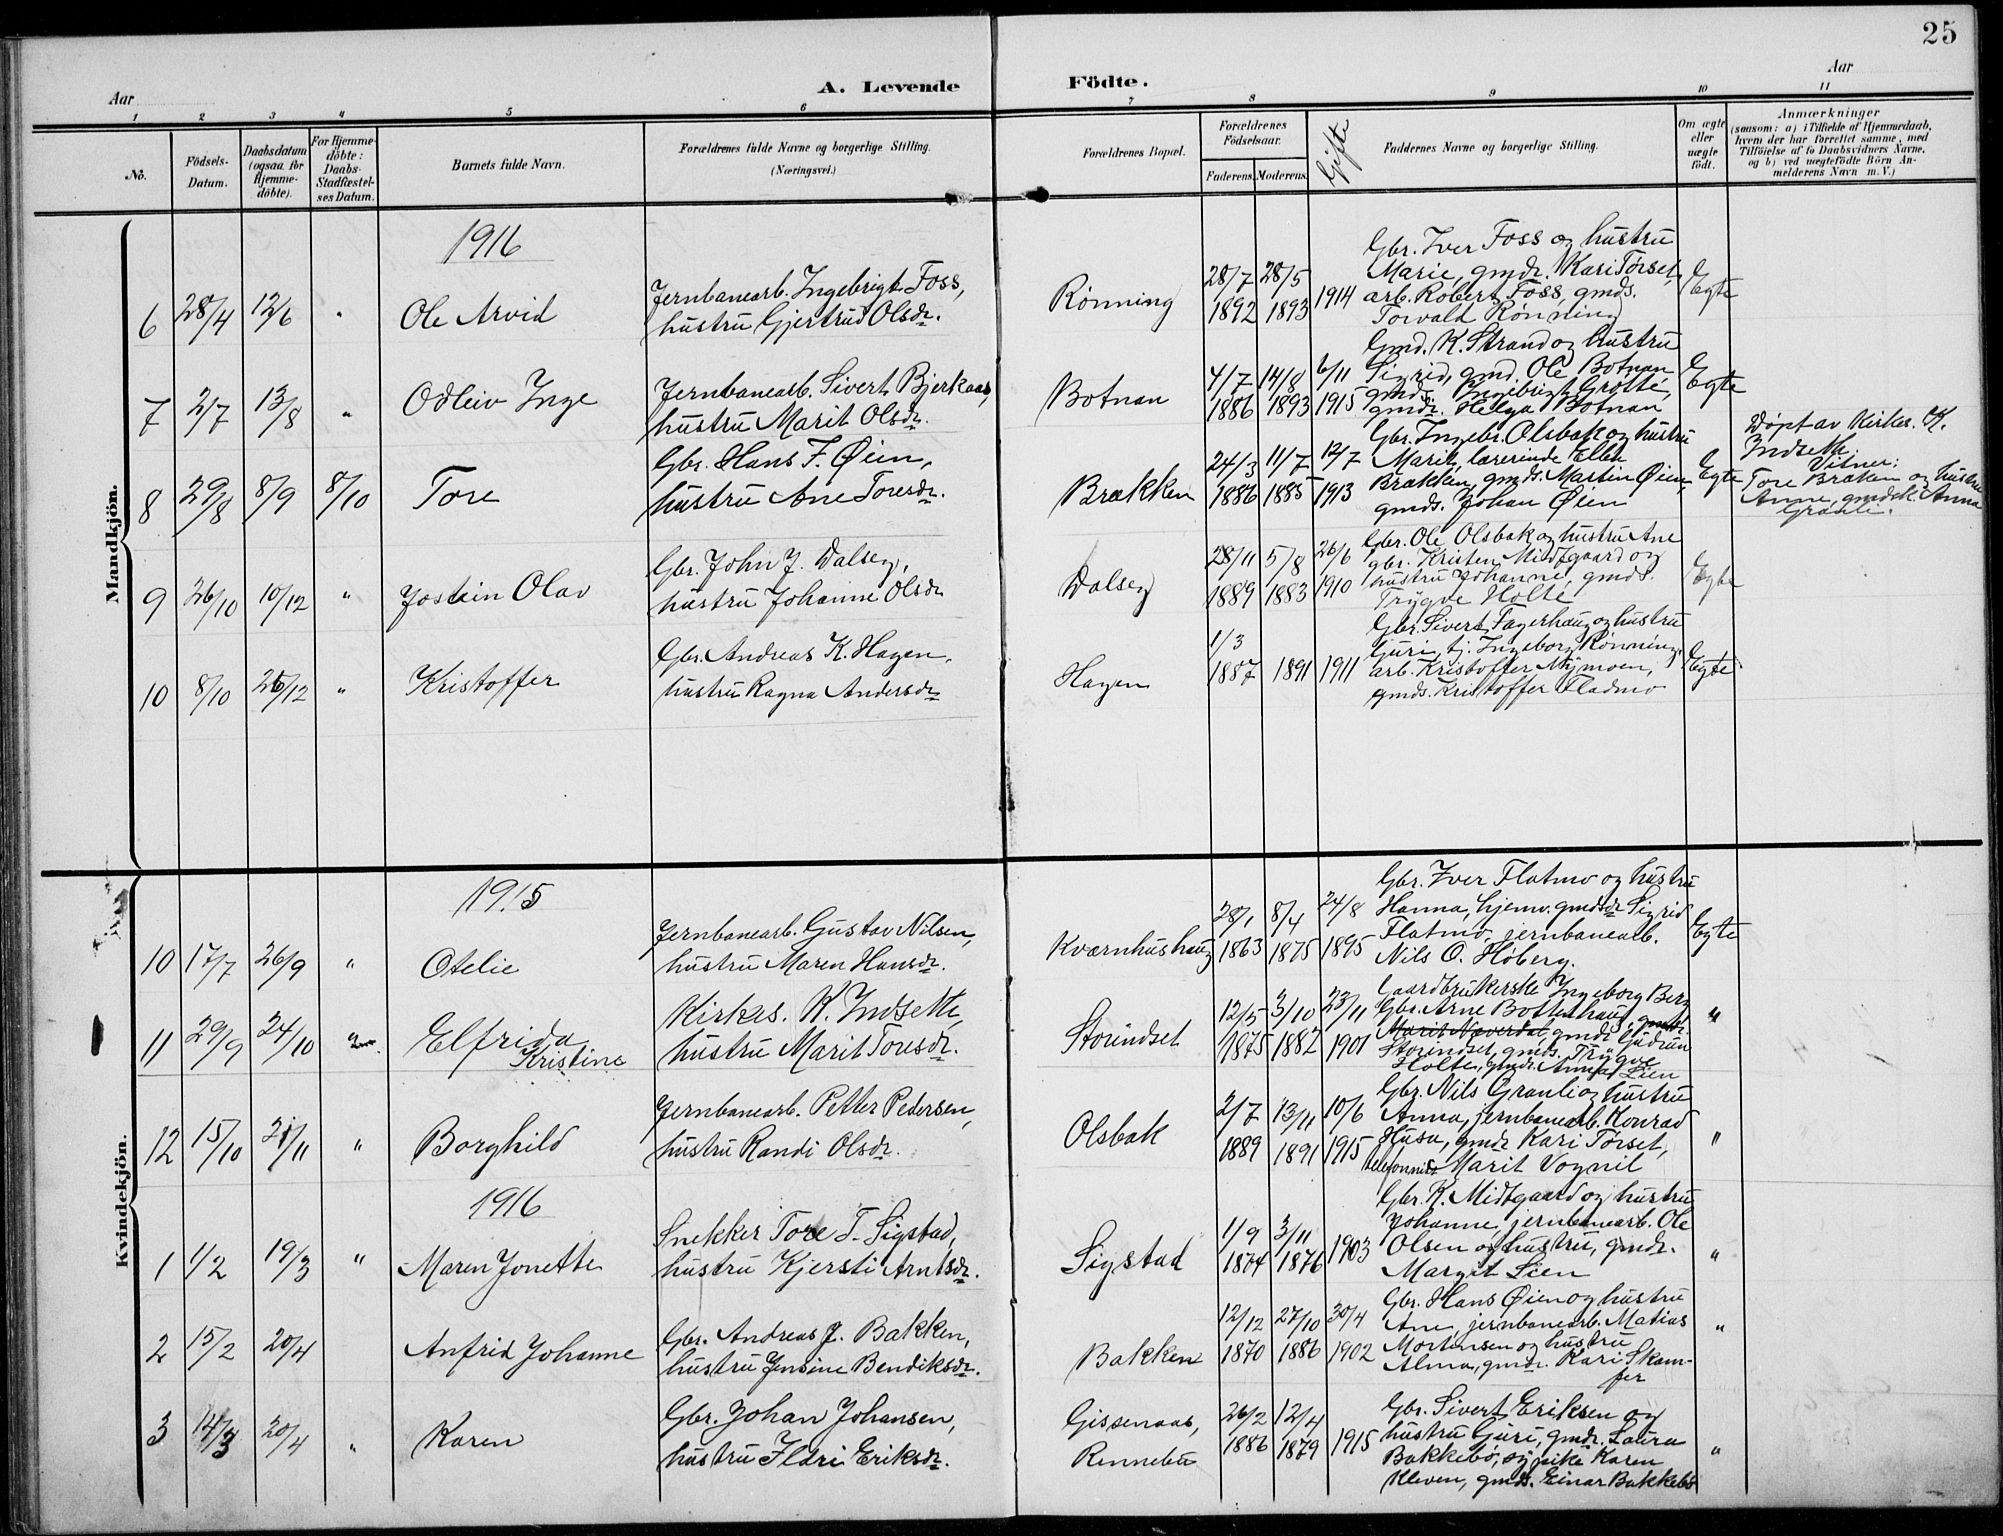 25
A. Levende Födte.
Aar
Aar
1 2 3 4 5 6 7 8 9 10 11
No.
Födsels-
Datum.
Daabsdatum
(ogsaa for
Hjemme-
döbte).
For Hjemme-
döbte:
Daabs-
Stadfæstel-
ses Datum.
Barnets fulde Navn.
Forældrenes fulde Navne og borgerlige Stilling.
(Næringsvei.)
Forældrenes Bopæl.
Forældrenes
Födselsaar.
Faderens.
Moderens.
Gifte
Faddernes Navne og borgerlige Stilling.
Om ægte
eller
uægte
födt.
Anmærkninger
(saasom: a) i Tilfælde af Hjemmedaab,
hvem der har forrettet samme, med
Tilföielse af to Daabsvidners Navne,
og b) ved uægtefödte Börn An-
melderens Navn m. V.)
Mandkjön.
1916
6 28/4 12/6 " Ole Arvid
Jernbanearb. Ingebrigt Foss,
hustru Gjertrud Olsdr.
Rønning
28/7 28/5
1892 1893 1914
Gbr. Iver Foss og hustru
Marie, gmdr. Kari Tørset,
arb. Robert Foss, gmds.
Torvald Rønning
Egte
7 2/7 13/8 " Odleiv Inge
Jernbanearb. Sivert Bjerkaas,
hustru Marit Olsdr.
Botnan
4/7 14/8 6/11
1886 1893 1915
Gmd. K. Strand og hustru
Sigrid, gmd. Ole Botnan,
gmds. Ingebrigt Grøtte,
gmdr. Helga Botnan
Egte
8 29/8 8/9 8/10 Tore
Gbr. Hans F. Øien,
hustru Ane Toresdr.
Brækken
24/3 11/7 12/7
1886 1885 1913
Gbr. Ingebr. Olsbak og hustru
Marit, lærerinde Ellen
Brækken, gmds. Martin Øien,
gmds. Johan Øien
Egte
Døpt av Kirkes. K.
Indsette
Vitner:
Tore Bræken og hustru
Anne, gmdsk. Anna
Granli.
9 26/10 10/12 " Jostein Olav
Gbr. John J. Dalseg,
hustru Johanne Olsdr
Dalseg
28/11 5/8 26/6
1889 1883 1910
Gbr. Ole Olsbak og hustru Ane
gbr. Kristen Midtgaard og
hustru Johanne, gmds.
Trygve Holte
Egte
10 8/10 26/12 " Kristoffer
Gbr. Andreas K. Hagen,
hustru Ragna Andersdr
Hagen
1/3
1887 1891 1911
Gbr. Sivert Fagerhaug og hustru
Guri, tj. Ingeborg Rønning,
arb. Kristoffer Nymoen,
gmds. Kristoffer Fladmo
Egte
Kvindekjön.
1915
10 17/7 26/9 " Otelie
Jernbanearb. Gustav Nilsen,
hustru Maren Hansdr.
Kværnhushaug
28/1 8/4 24/8
1863 1875 1895
Gbr. Iver Flatmo og hustru
Hanna, hjemv. gmdsdr Sigrid
Flatmo, jernbanearb.
Nils O. Høberg.
Egte
11 29/9 24/10 Elfrida
Kristine
Kirkes. K. Indsette,
hustru Marit Toresdr.
Storindset
12/5 3/10 23/11
1875 1882 1901
Gaardbrukerske Ingeborg Berg
Gbr. Arne Bottenhaug, gmdr.
Marit Næverdal, gmdr Gudrun
Storindset, gmds. Trygve
Holte, gmdr. Anna Lien
"
12 15/10 21/11 " Borghild
Jernbanearb. Petter Pedersen,
hustru Randi Olsdr.
Olsbak
2/7 13/11 10/6
1889 1891 1915
Gbr. Nils Granli og hustru
Anna, jernbanearb. Konrad
Husa, gmdr Kari Tørset,
telefonnist Marit Vognil
"
1916
1 1/2 19/3 " Maren Jonette
Snekker Tore T. Sigstad,
hustru Kjersti Arntsdr.
Sigstad
1/9 3/11
1874 1876 1903
Gbr. K. Midtgaard og hustru
Johanne, jernbanearb. Ole
Olsen og hustru, gmdr.
Margit Lien
"
2 15/2 20/4 Anfrid Johanne
Gbr. Andreas J. Bakken,
hustru Jensine Bendiksdr.
Bakken
12/12 27/10 30/4
1870 1886 1902
Gbr. Hans Øien og hustru
Ane, jernbanearb. Matias
Mortensen og hustru
Alma, gmdr. Kari Skam-
fer
"
3 14/3 20/4 " Karen
Gbr. Johan Johansen,
hustru Ildri Eriksdr.
Gissenaas,
Rennebu
26/2 12/4
1886 1879 1915
Gbr. Sivert Eriksen og
hustru Guri, gmdr. Laura
Bakkebø, sypike Karen
Kleven, gmds. Einar Bakkebø
"